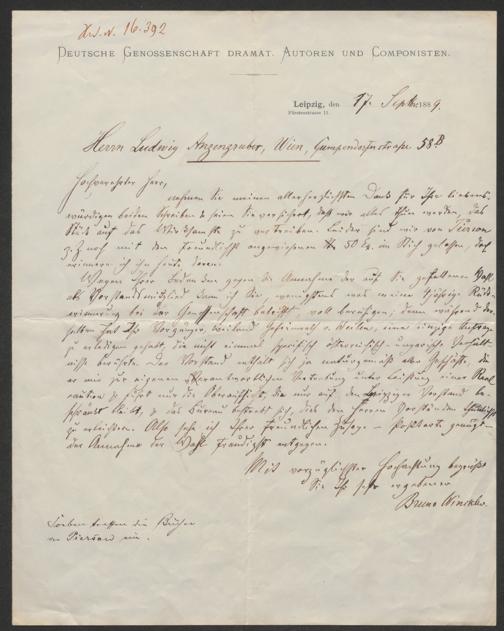 16.392
DEUTSCHE GENOSSENSCHAFT DRAMAT. AUTOREN UND COMPONISTEN.
Leipzig, den 17. Septbr. 1889.
Herrn Ludwig Anzengruber, Wien, Gumpendorferstraße 58B
Hochverehrter Herr,
nehmen Sie meinen allerherzlichsten Dank für Ihre liebens-
würdigen beiden Schreiben & seien Sie versichert, daß wir alles thun werden, das
Stück auf das Wirksamste zu vertreiben. Leider sind wir von Pierson
z. Z. noch mit den freundlichst angewiesenen 50 im Stich gelassen,
erinnere ich ihn heute daran.
Wegen Ihrer Bedenken gegen die Annahme der auf Sie gefallenen Wahl
als Vorstandsmitglied kann ich Sie, wenigstens was meine jährige Rück-
erinnerung bei der Genossenschaft betrifft, voll beruhigen, denn während der-
selben hat Ihr Vorgänger, weiland Hofrath v. Weilen, eine einzige Anfrage
zu erledigen gehabt, die nicht einmal spezifisch österreichisch-ungarische Verhält-
nisse berührte. Der Vorstand enthält sich ja naturgemäß aller Geschäfte, die
er mir zur eigenen Verantwortlichen Vertretung unter Leistung einer Real
caution & führt nur die Oberaufsicht, die nur auf den Leipziger Vorstand be-
schränkt bleibt, & das Bureau bestrebt sich, dies den Herren Vorständen
zu erleichtern. Also sehe ich Ihrer freundlichen Zusage – Postkarte genügt –
der Annahme der Wahl freudigst entgegen.
Mit vorzüglichster Hochachtung begrüßt
Sie Ihr sehr ergebener
Bruno Winckler.
Soeben treffen die Bücher
von Pierson ein.